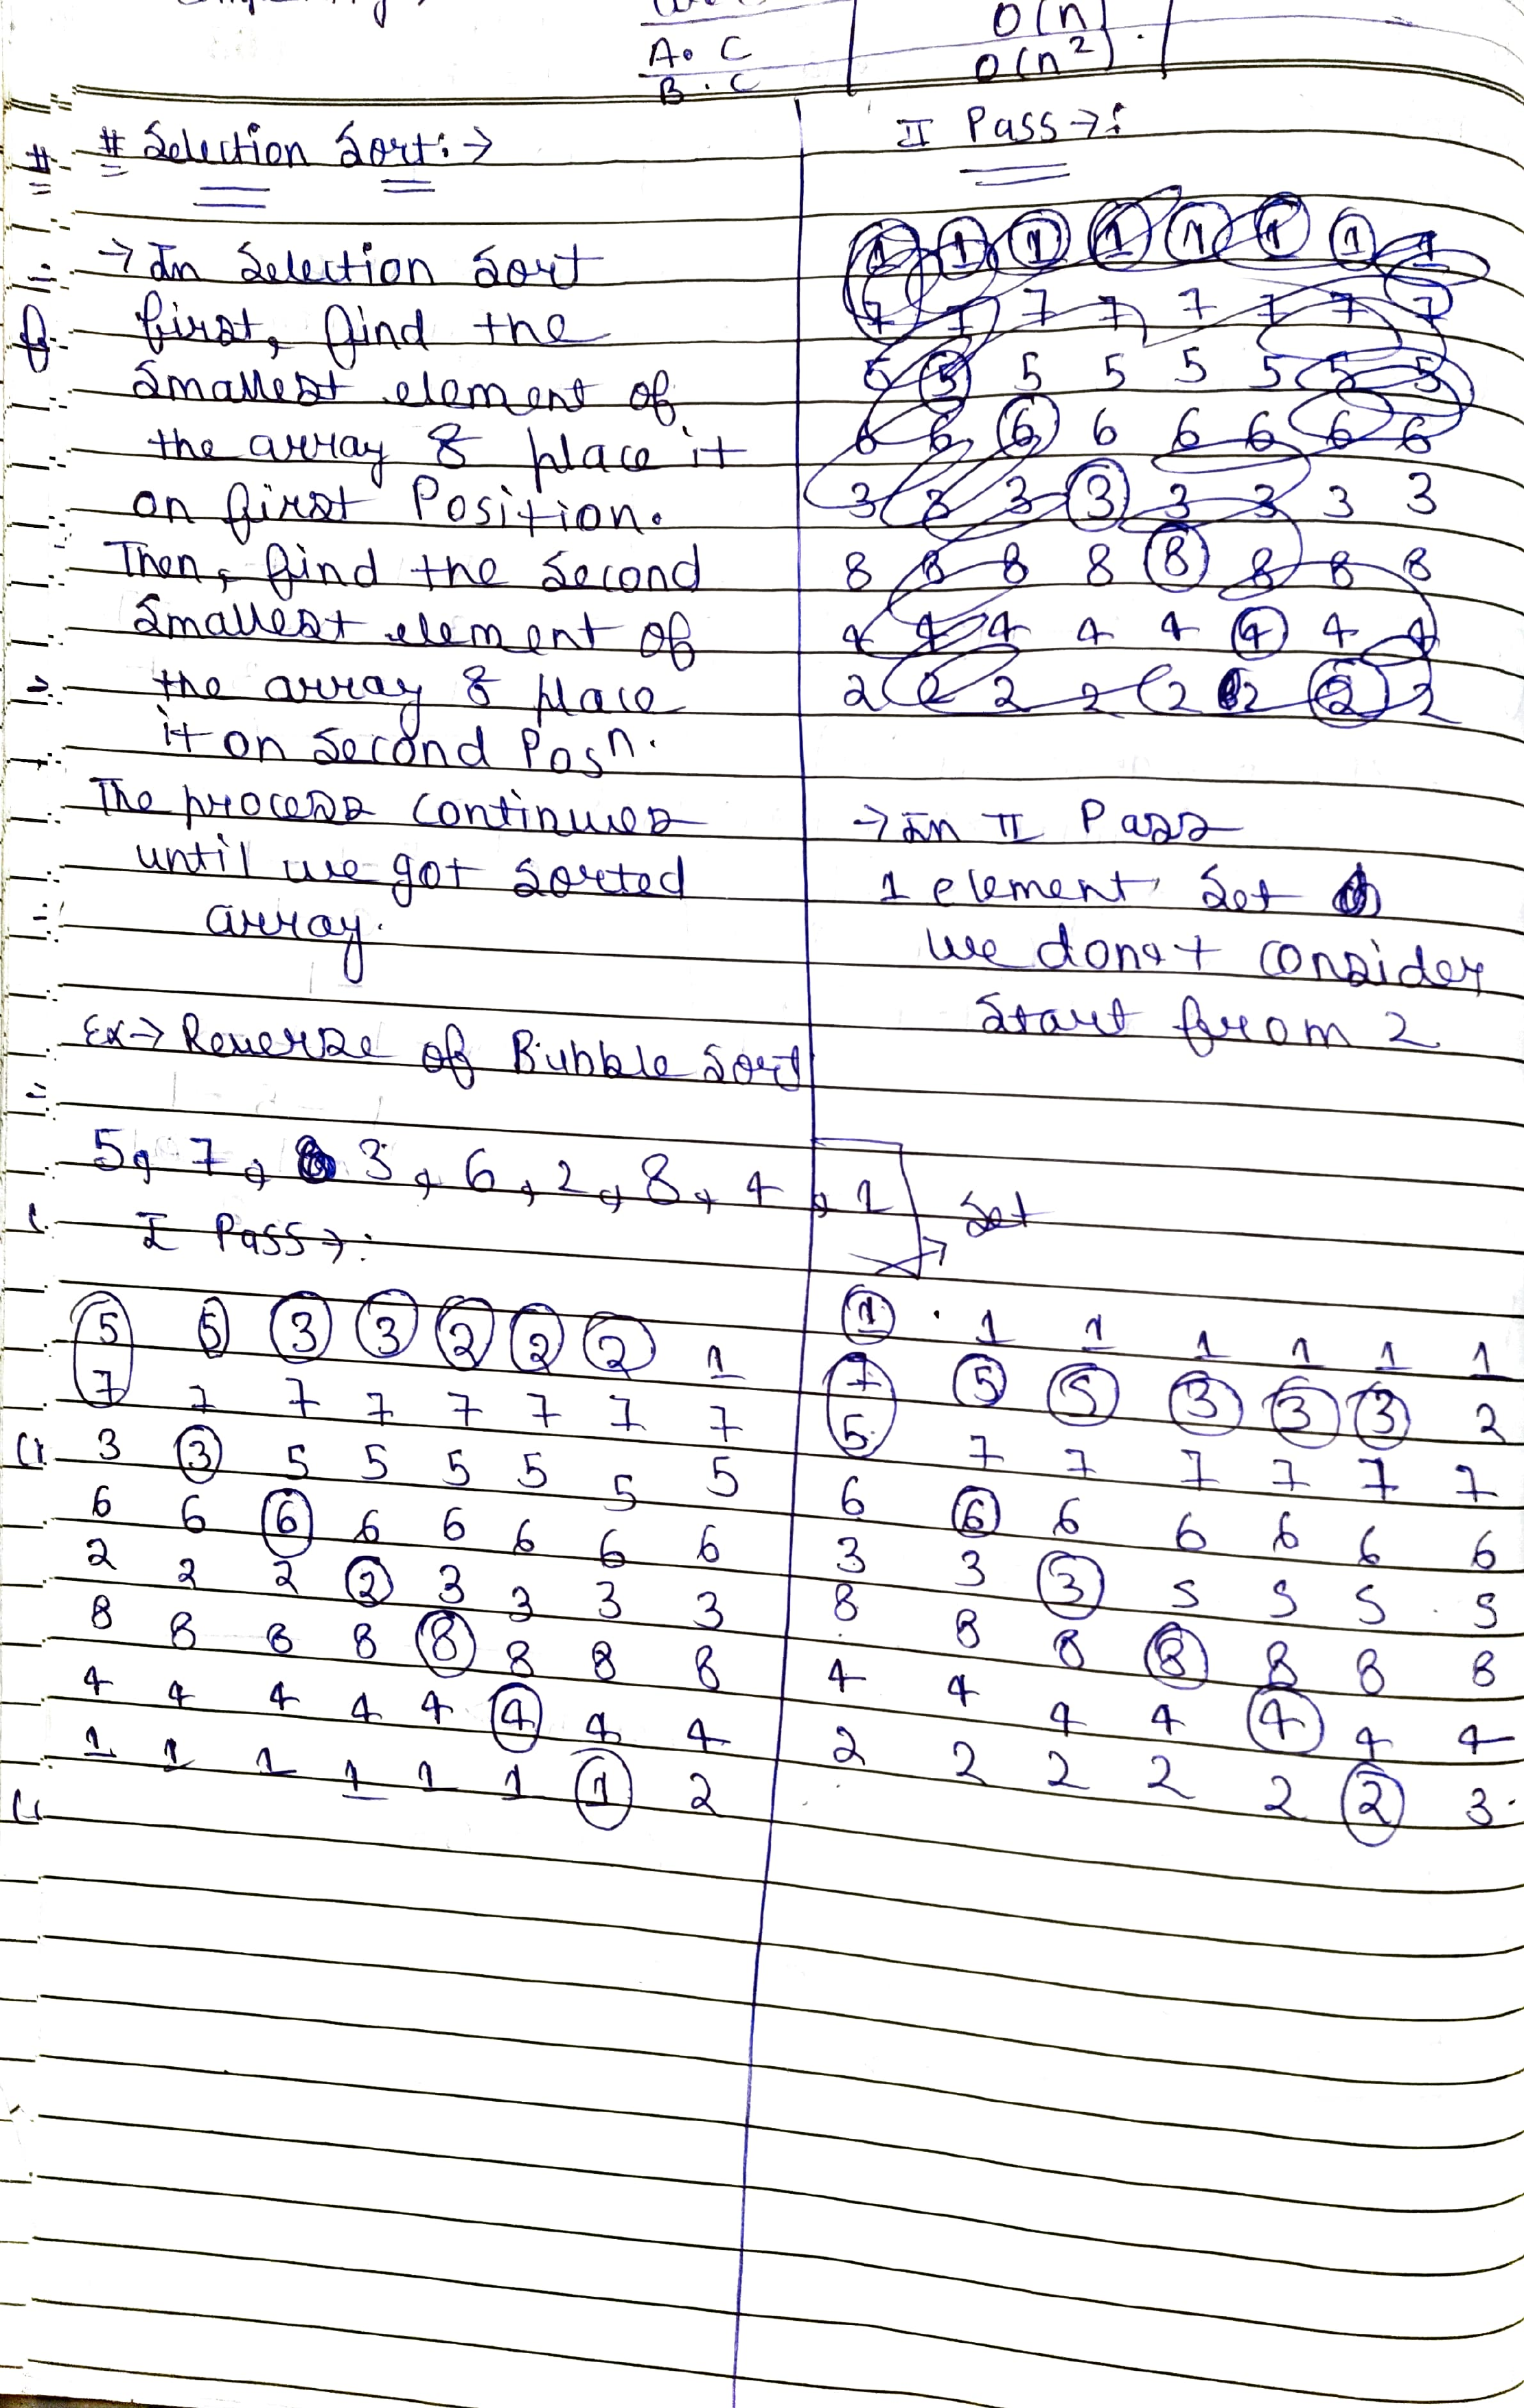 A. C
O(n)
B. C
O(n²).
# Selection Sort :→
→ In Selection Sort
first, find the
smallest element of
the array & place it
on first Position.
Then, find the second
smallest element of
the array & place
it on second Posn.
The process continues
until we got sorted
array.
Ex→ Reverse of Bubble Sort
5, 7, 3, 6, 2, 8, 4, 1
I Pass→:
5 5 3 3 2 2 2 1
7 7 7 7 7 7 7 7
3 3 5 5 5 5 5 5
6 6 6 6 6 6 6 6
2 2 2 2 3 3 3 3
8 8 8 8 8 8 8 8
4 4 4 4 4 4 4 4
1 1 1 1 1 1 1 2
II Pass→:
1 1 1 1 1 1 1 1
7 7 7 7 7 7 7 7
5 5 5 5 5 5 5 5
6 6 6 6 6 6 6 6
3 3 3 3 3 3 3 3
8 8 8 8 8 8 8 8
4 4 4 4 4 4 4 4
2 2 2 2 2 2 2 2
→ In II Pass
1 element set
we don't consider
start from 2
Set
1 1 1 1 1 1 1
7 5 5 3 3 3 2
5 7 7 7 7 7 7
6 6 6 6 6 6 6
3 3 3 5 5 5 5
8 8 8 8 8 8 8
4 4 4 4 4 4 4
2 2 2 2 2 2 3